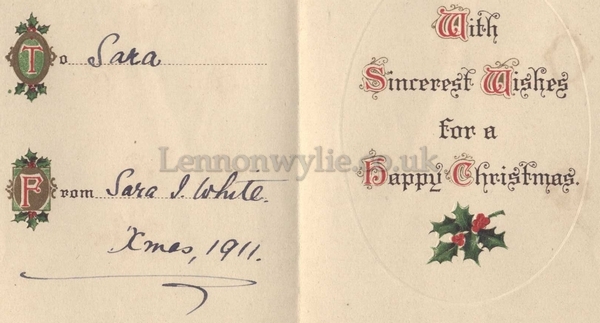 To Sara
From Sara J. White.
Xmas, 1911.
With
Sincerest Wishes
for a
Happy Christmas.
Lennonwylie.co.uk